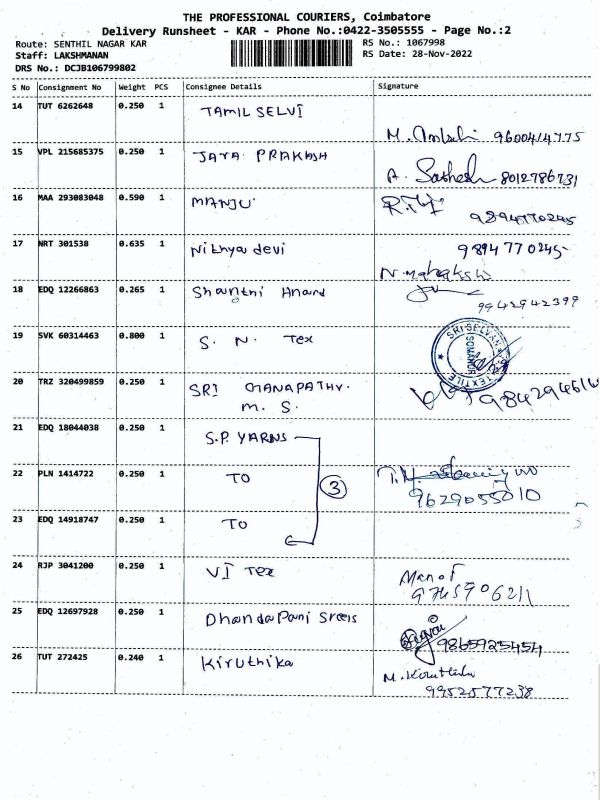 THE PROFESSIONAL COURIERS, Coimbatore
Delivery Runsheet - KAR - Phone No.:0422-3505555 - Page No.:2
Route: SENTHIL NAGAR KAR
RS No.: 1067998
Staff: LAKSHMANAN
RS Date: 28-Nov-2022
DRS No.: DCJB106799802
S No Consignment No Weight PCS Consignee Details Signature
14 TUT 6262648 0.250 1 TAMIL SELVI
9600414775
15 VPL 215685375 0.250 1 JAYA PRAKASH
A. Sathesh 8012786731
16 MAA 293083048 0.590 1 MANJU
9894770245
17 NRT 301538 0.635 1 Nithya devi 9894770245
18 EDQ 12266863 0.265 1 Shanthi Anand
9942942399
19 SVK 60314463 0.800 1 S. N. Tex
SRI SELVAN TEXTILE
SOMANUR
20 TRZ 320499859 0.250 1 SRI GANAPATHY.
M. S.
21 EDQ 18044038 0.250 1 S.P. YARNS
22 PLN 1414722 0.250 1 TO 3
9629055010
23 EDQ 14918747 0.250 1 TO
24 RJP 3041200 0.250 1 VI Tex Manoj
9765906211
25 EDQ 12697928 0.250 1 DhandaPani Srees
9865925454
26 TUT 272425 0.240 1 Kiruthika
M. Kiruthika
9952577238